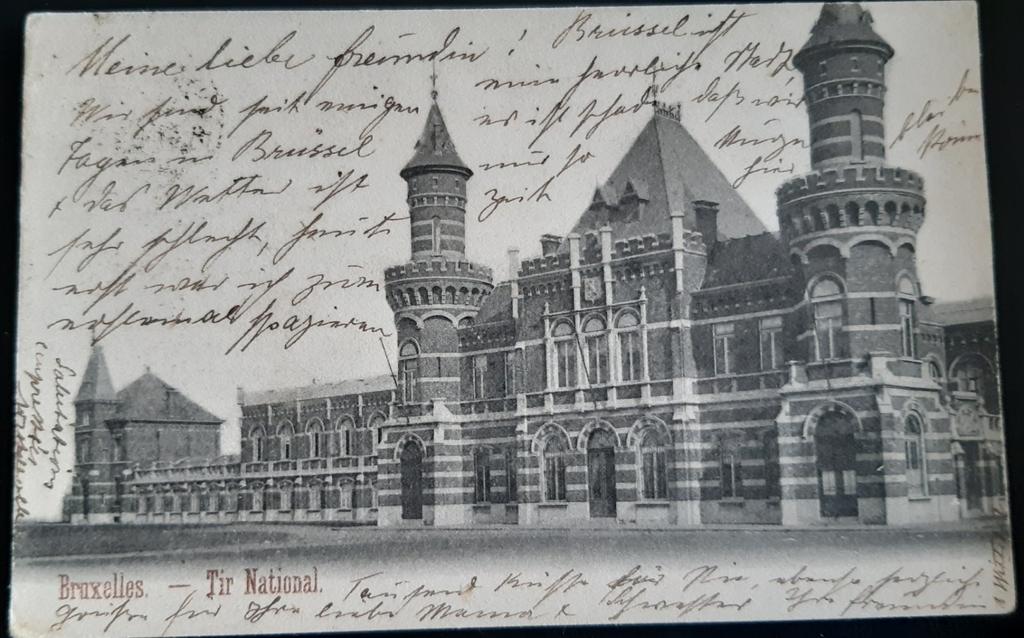 Meine liebe freundin!
Wir sind seit einigen
Tagen in Brüssel
+ das Wetter ist
sehr schlecht, heute
erst war ich zum
erstenmal spazieren
Brüssel ist
eine herrliche Stadt
es ist schade daß wir
nur so kurze
Zeit hier
Salutations
empressées
Bruxelles. — Tir National.
Tausend Küsse für Sie, ebenso herzliche
Grüße für Ihre liebe Mama + Schwester Ihre Freundin